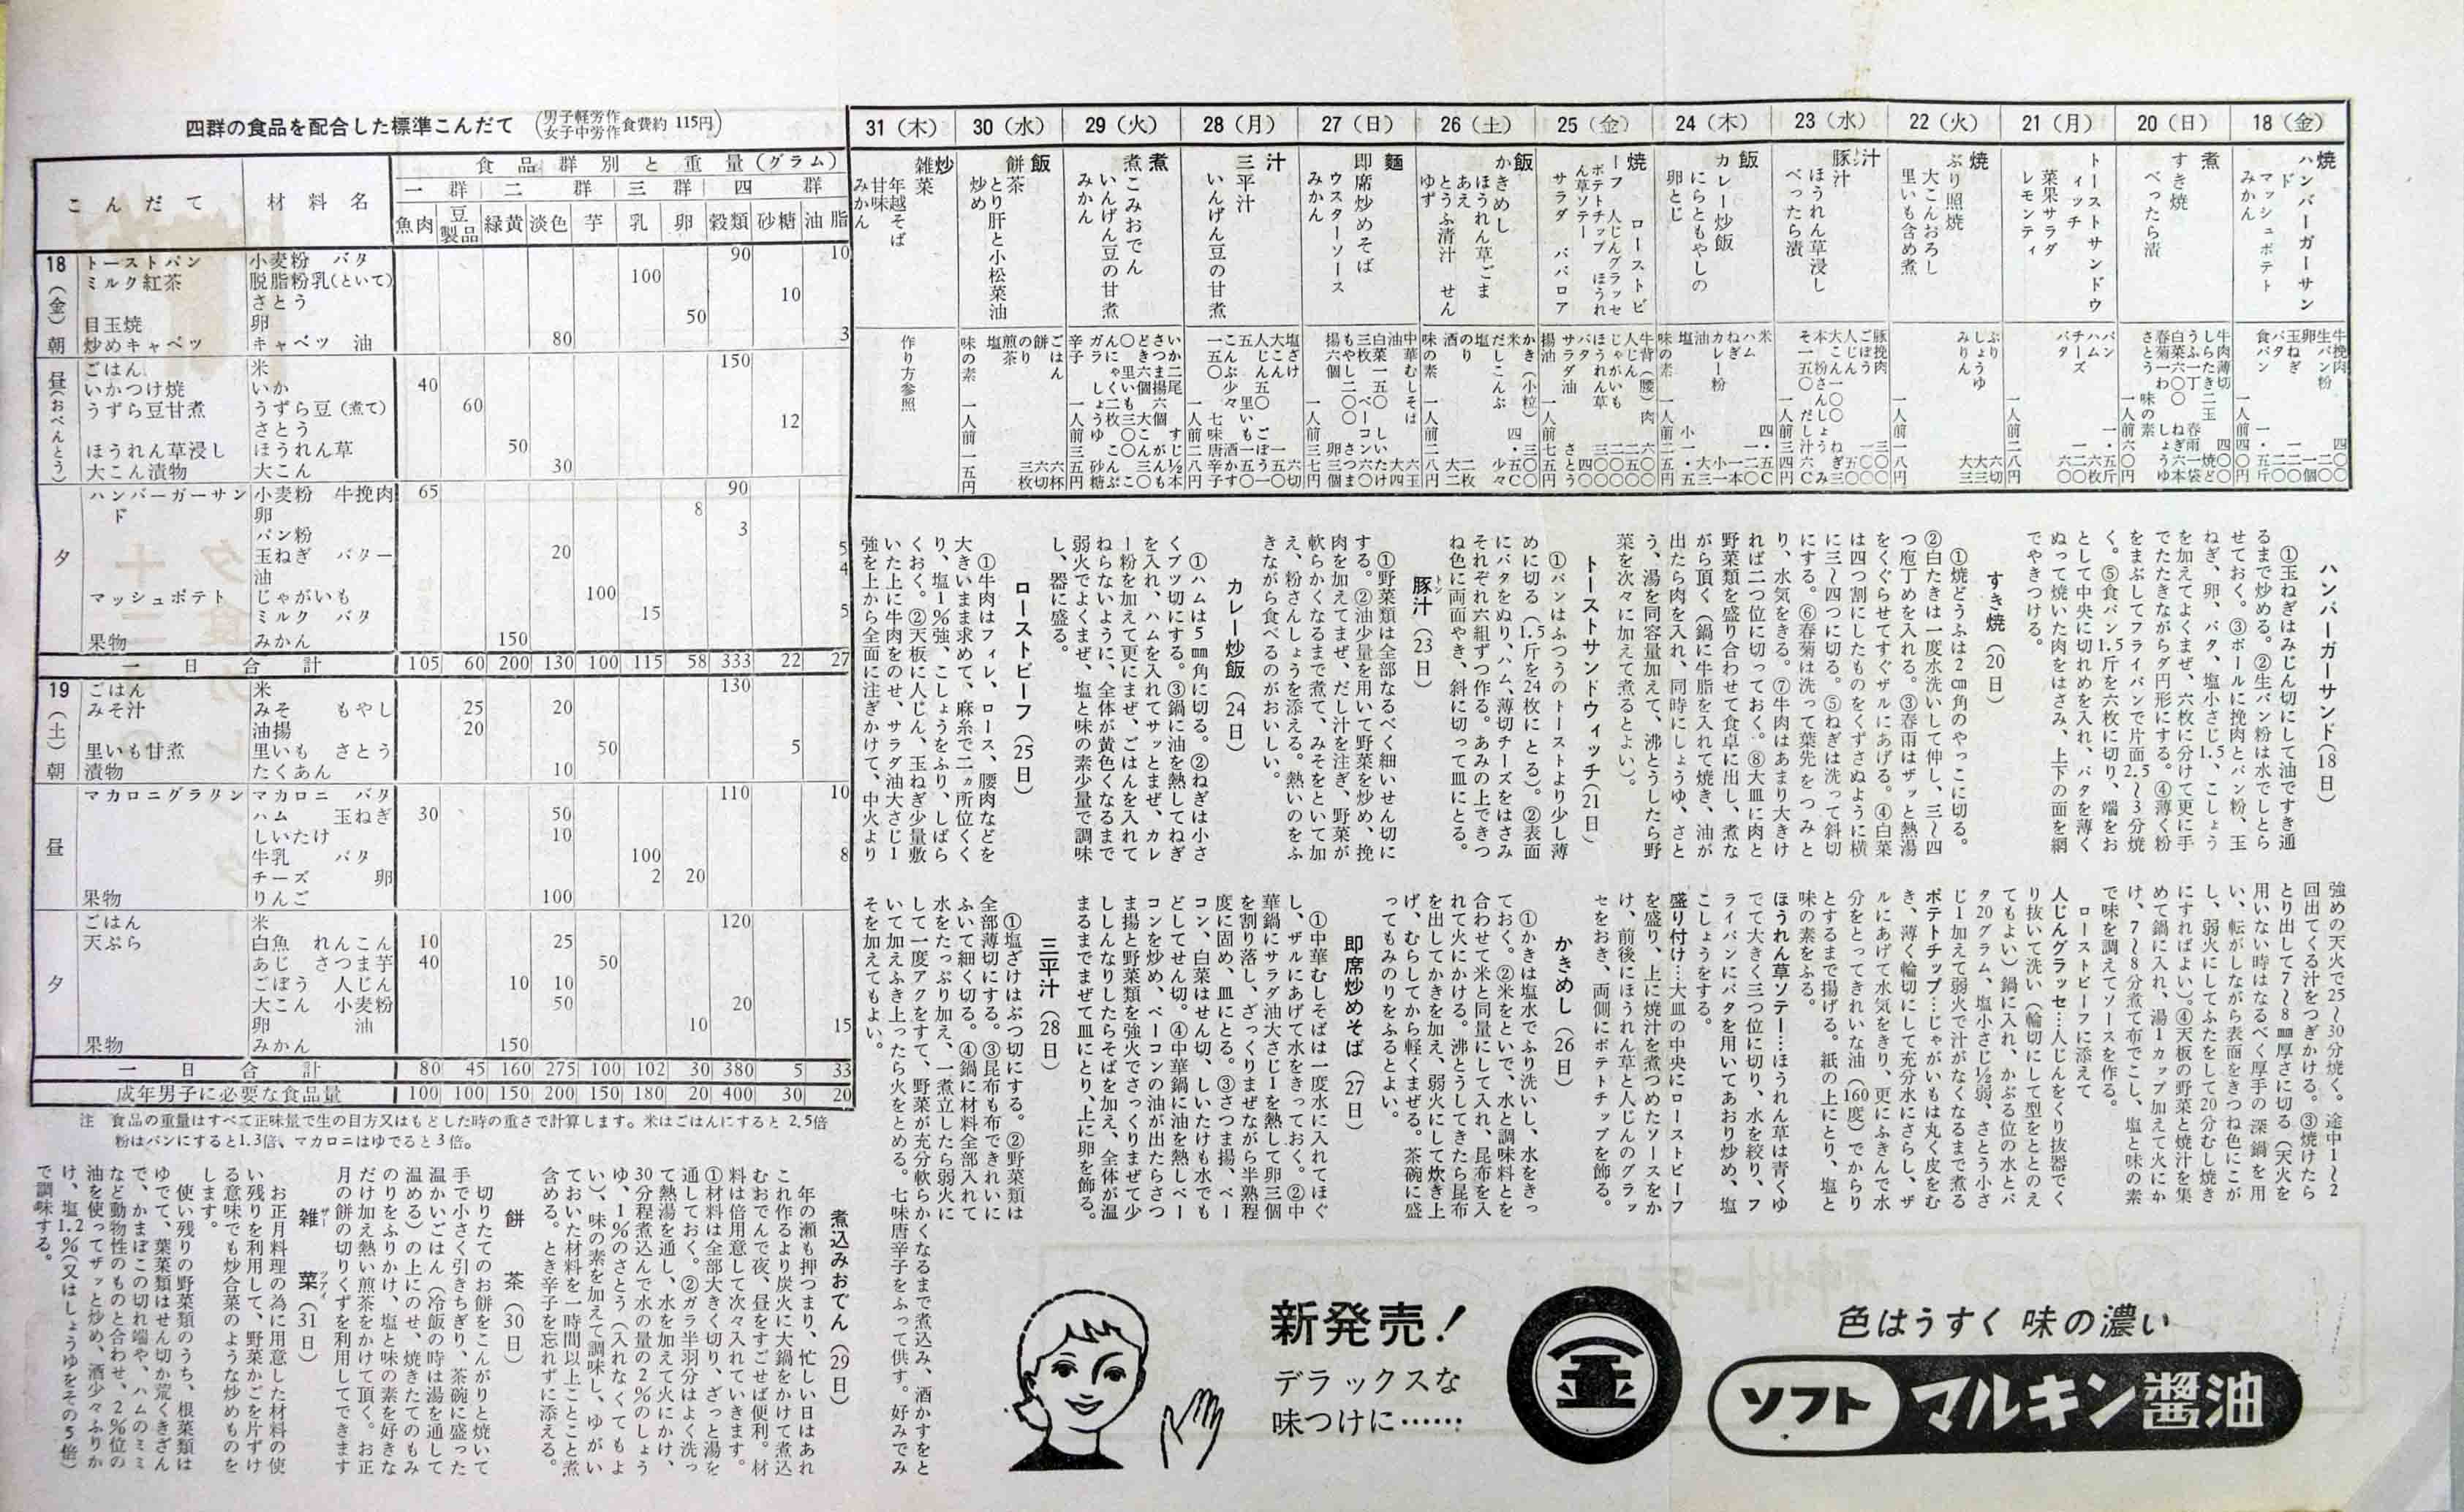 四群の食品を配合した標準こんだて（男子軽労作 女子中労作 食費約 115円）
こんだて 材料名 食品群別と重量(グラム)
一群 二群 三群 四群
魚肉 豆製品 緑黄 淡色 芋 乳 卵 穀類 砂糖 油脂
18（金）朝
トーストパン 小麦粉 バタ 90 10
ミルク紅茶 脱脂粉乳(といて) 100
さとう 10
目玉焼 卵 50
炒めキャベツ キャベツ 油 80 3
昼（おべんとう）
ごはん 米 150
いかつけ焼 いか 40
うずら豆甘煮 うずら豆(煮て) 60
さとう 12
ほうれん草浸し ほうれん草 50
大こん漬物 大こん 30
夕
ハンバーガーサンド 小麦粉 牛挽肉 65 90
卵 8
パン粉 3
玉ねぎ バター 20 5
油 4
マッシュポテト じゃがいも 100
ミルク バタ 15 5
果物 みかん 150
一日合計 105 60 200 130 100 115 58 333 22 27
19（土）朝
ごはん 米 130
みそ汁 みそ もやし 25 20
油揚 20
里いも甘煮 里いも さとう 50 5
漬物 たくあん 10
昼
マカロニグラタン マカロニ バタ 110 10
ハム 玉ねぎ 30 50
しいたけ 10
牛乳 バタ 100 8
チーズ 卵 2 20
果物 りんご 100
夕
ごはん 米 120
天ぷら 白魚 れんこん 10 25
あじ さつま芋 40 50
ごぼう 人じん 10 10
大こん 小麦粉 50 20
卵 油 10 15
果物 みかん 150
一日合計 80 45 160 275 100 102 30 380 5 33
成年男子に必要な食品量 100 100 150 200 150 180 20 400 30 20
注 食品の重量はすべて正味量で生の目方又はもどした時の重さで計算します。米はごはんにすると 2,5倍
粉はパンにすると1.3倍、マカロニはゆでると3倍。
18（金）
焼 ハンバーガーサンド
マッシュポテト
みかん
牛挽肉
生パン粉
卵
玉ねぎ
バタ
食パン
一人前四〇円
20（日）
煮 すき焼
べったら漬
牛肉薄切
しらたき二玉
うふ一丁
春雨一袋
白菜六〇〇
ねぎ六本
春菊一わ
しょうゆ
さとう 味の素
一人前六〇円
21（月）
トーストサンドウィッチ
菓果サラダ
レモンティ
パン
ハム
チーズ
バタ
一人前二八円
22（火）
焼 ぶり照焼
大こんおろし
里いも含め煮
ぶり
しょうゆ
みりん
一人前一八円
23（水）
汁 豚汁
ほうれん草浸し
べったら漬
豚挽肉
ごぼう
人じん
大こん
一人前三四円
24（木）
飯 カレー炒飯
にらともやしの卵とじ
米
ハム
ねぎ
カレー粉
油
塩
味の素
一人前二五円
25（金）
焼 ローストビーフ 人じんグラッセ
ポテトチップ ほうれん草ソテー
サラダ ババロア
牛背（腰）肉
人じん
じゃがいも
ほうれん草
バタ
サラダ油
さとう
揚油
一人前七五円
26（土）
飯 かきめし
ほうれん草ごまあえ
とうふ清汁 せんゆず
かき（小粒）
米
だしこんぶ
塩
のり
酒
味の素
一人前二八円
27（日）
麺 即席炒めそば
ウスターソース
みかん
中華むしそば 六玉
油
白菜一五〇 しいたけ
三枚 ベーコン六〇
もやし二〇〇 さつま
揚六個 卵三個
一人前三七円
28（月）
汁 三平汁
いんげん豆の甘煮
塩ざけ 六切
大こん
人じん五〇 ごぼう一
五〇 里いも一五〇
こんぶ少々 酒かす
一五〇 七味唐辛子
一人前二八円
29（火）
煮 煮こみおでん
いんげん豆の甘煮
みかん
いか二尾 すじ½本
さつま揚六個 がんも
どき六個 大こん三〇
〇 里いも三〇〇 こん
にゃく二枚 こんぶ
ガラ しょうゆ 砂糖
辛子
一人前三五円
30（水）
飯 餅茶
とり肝と小松菜油炒め
ごはん 六杯
餅 六切
のり 三枚
煎茶
塩
味の素
一人前一五円
31（木）
炒 雑菜
年越そば
甘味
みかん
作り方参照
ハンバーガーサンド（18日）
①玉ねぎはみじん切にして油ですき通
るまで炒める。②生パン粉は水でしとら
せておく。③ボールに挽肉とパン粉、玉
ねぎ、卵、バタ、塩小さじ1.5、こしょう
を加えてよくまぜ、六枚に分けて更に手
でたたきながらダ円形にする。④薄く粉
をまぶしてフライパンで片面2.5～3分焼
く。⑤食パン1.5斤を六枚に切り、端をお
として中央に切れめを入れ、バタを薄く
ぬって焼いた肉をはさみ、上下の面を網
でやきつける。
すき焼（20日）
①焼どうふは2㎝角のやっこに切る。
②白たきは一度水洗いして伸し、三～四
つ庖丁めを入れる。③春雨はザッと熱湯
をくぐらせてすぐザルにあげる。④白菜
は四つ割にしたものをくずさぬように横
に三～四つに切る。⑤ねぎは洗って斜切
にする。⑥春菊は洗って葉先をつみと
り、水気をきる。⑦牛肉はあまり大きけ
れば二つ位に切っておく。⑧大皿に肉と
野菜類を盛り合わせて食卓に出し、煮な
がら頂く（鍋に牛脂を入れて焼き、油が
出たら肉を入れ、同時にしょうゆ、さと
う、湯を同容量加えて、沸とうしたら野
菜を次々に加えて煮るとよい）。
トーストサンドウィッチ（21日）
①パンはふつうのトーストより少し薄
めに切る（1.5斤を24枚にとる）。②表面
にバタをぬり、ハム、薄切チーズをはさみ
それぞれ六組ずつ作る。あみの上できつ
ね色に両面やき、斜に切って皿にとる。
豚汁（23日）
①野菜類は全部なるべく細いせん切に
する。②油少量を用いて野菜を炒め、挽
肉を加えてまぜ、だし汁を注ぎ、野菜が
軟らかくなるまで煮て、みそをといて加
え、粉さんしょうを添える。熱いのをふ
きながら食べるのがおいしい。
カレー炒飯（24日）
①ハムは5㎜角に切る。②ねぎは小さ
くブツ切にする。③鍋に油を熱してねぎ
を入れ、ハムを入れてサッとまぜ、カレ
ー粉を加えて更にまぜ、ごはんを入れて
ねらないように、全体が黄色くなるまで
弱火でよくまぜ、塩と味の素少量で調味
し、器に盛る。
ローストビーフ（25日）
①牛肉はフィレ、ロース、腰肉などを
大きいまま求めて、麻糸で二ヵ所位くく
り、塩1％強、こしょうをふり、しばら
くおく。②天板に人じん、玉ねぎ少量敷
いた上に牛肉をのせ、サラダ油大さじ1
強を上から全面に注ぎかけて、中火より
強めの天火で25～30分焼く。途中1～2
回出てくる汁をつぎかける。③焼けたら
とり出して7～8㎜厚さに切る（天火を
用いない時はなるべく厚手の深鍋を用
い、転がしながら表面をきつね色にこが
し、弱火にしてふたをして20分むし焼き
にすればよい）。④天板の野菜と焼汁を集
めて鍋に入れ、湯1カップ加えて火にか
け、7～8分煮て布でこし、塩と味の素
で味を調えてソースを作る。
ローストビーフに添えて
人じんグラッセ…人じんをくり抜器でく
り抜いて洗い（輪切にして型をととのえ
てもよい）鍋に入れ、かぶる位の水とバ
タ20グラム、塩小さじ½弱、さとう小さ
じ1加えて弱火で汁がなくなるまで煮る
ポテトチップ…じゃがいもは丸く皮をむ
き、薄く輪切にして充分水にさらし、ザ
ルにあげて水気をきり、更にふきんで水
分をとってきれいな油（160度）でからり
とするまで揚げる。紙の上にとり、塩と
味の素をふる。
ほうれん草ソテー…ほうれん草は青くゆ
でて大きく三つ位に切り、水を絞り、フ
ライパンにバタを用いてあおり炒め、塩
こしょうをする。
盛り付け…大皿の中央にローストビーフ
を盛り、上に焼汁を煮つめたソースをか
け、前後にほうれん草と人じんのグラッ
セをおき、両側にポテトチップを飾る。
かきめし（26日）
①かきは塩水でふり洗いし、水をきっ
ておく。②米をといで、水と調味料とを
合わせて米と同量にして入れ、昆布を入
れて火にかける。沸とうしてきたら昆布
を出してかきを加え、弱火にして炊き上
げ、むらしてから軽くまぜる。茶碗に盛
ってもみのりをふるとよい。
即席炒めそば（27日）
①中華むしそばは一度水に入れてほぐ
し、ザルにあげて水をきっておく。②中
華鍋にサラダ油大さじ1を熱して卵三個
を割り落し、ざっくりまぜながら半熟程
度に固め、皿にとる。③さつま揚、ベー
コン、白菜はせん切、しいたけも水でも
どしてせん切。④中華鍋に油を熱しベー
コンを炒め、ベーコンの油が出たらさつ
ま揚と野菜類を強火でさっくりまぜて少
ししんなりしたらそばを加え、全体が温
まるまでまぜて皿にとり、上に卵を飾る。
三平汁（28日）
①塩ざけはぶつ切にする。②野菜類は
全部薄切にする。③昆布も布できれいに
ふいて細く切る。④鍋に材料全部入れて
水をたっぷり加え、一煮立したら弱火に
して一度アクをすて、野菜が充分軟らかくなるまで煮込み、酒かすをと
いて加えふき上ったら火をとめる。七味唐辛子をふって供す。好みでみ
そを加えてもよい。
煮込みおでん（29日）
年の瀬も押つまり、忙しい日はあれ
これ作るより炭火に大鍋をかけて煮込
むおでんで夜、昼をすごせば便利。材
料は倍用意して次々入れていきます。
①材料は全部大きく切り、ざっと湯を
通しておく。②ガラ半羽分はよく洗っ
て熱湯を通し、水を加えて火にかけ、
30分程煮込んで水の量の2％のしょう
ゆ、1％のさとう（入れなくてもよ
い）、味の素を加えて調味し、ゆがい
ておいた材料を一時間以上ことこと煮
含める。とき辛子を忘れずに添える。
餅茶（30日）
切りたてのお餅をこんがりと焼いて
手で小さく引きちぎり、茶碗に盛った
温かいごはん（冷飯の時は湯を通して
温める）の上にのせ、焼きたてのもみ
のりをふりかけ、塩と味の素を好きな
だけ加え熱い煎茶をかけて頂く。お正
月の餅の切りくずを利用してできます
雑菜（31日）
お正月料理の為に用意した材料の使
い残りを利用して、野菜かごを片ずけ
る意味でも炒合菜のような炒めものを
します。
使い残りの野菜類のうち、根菜類は
ゆでて、葉菜類はせん切か荒くきざん
で、かまぼこの切れ端や、ハムのミミ
など動物性のものと合わせ、2％位の
油を使ってザッと炒め、酒少々ふりか
け、塩1.2％（又はしょうゆをその5倍）
で調味する。
新発売！
デラックスな
味つけに……
金
色はうすく 味の濃い
ソフト マルキン醤油